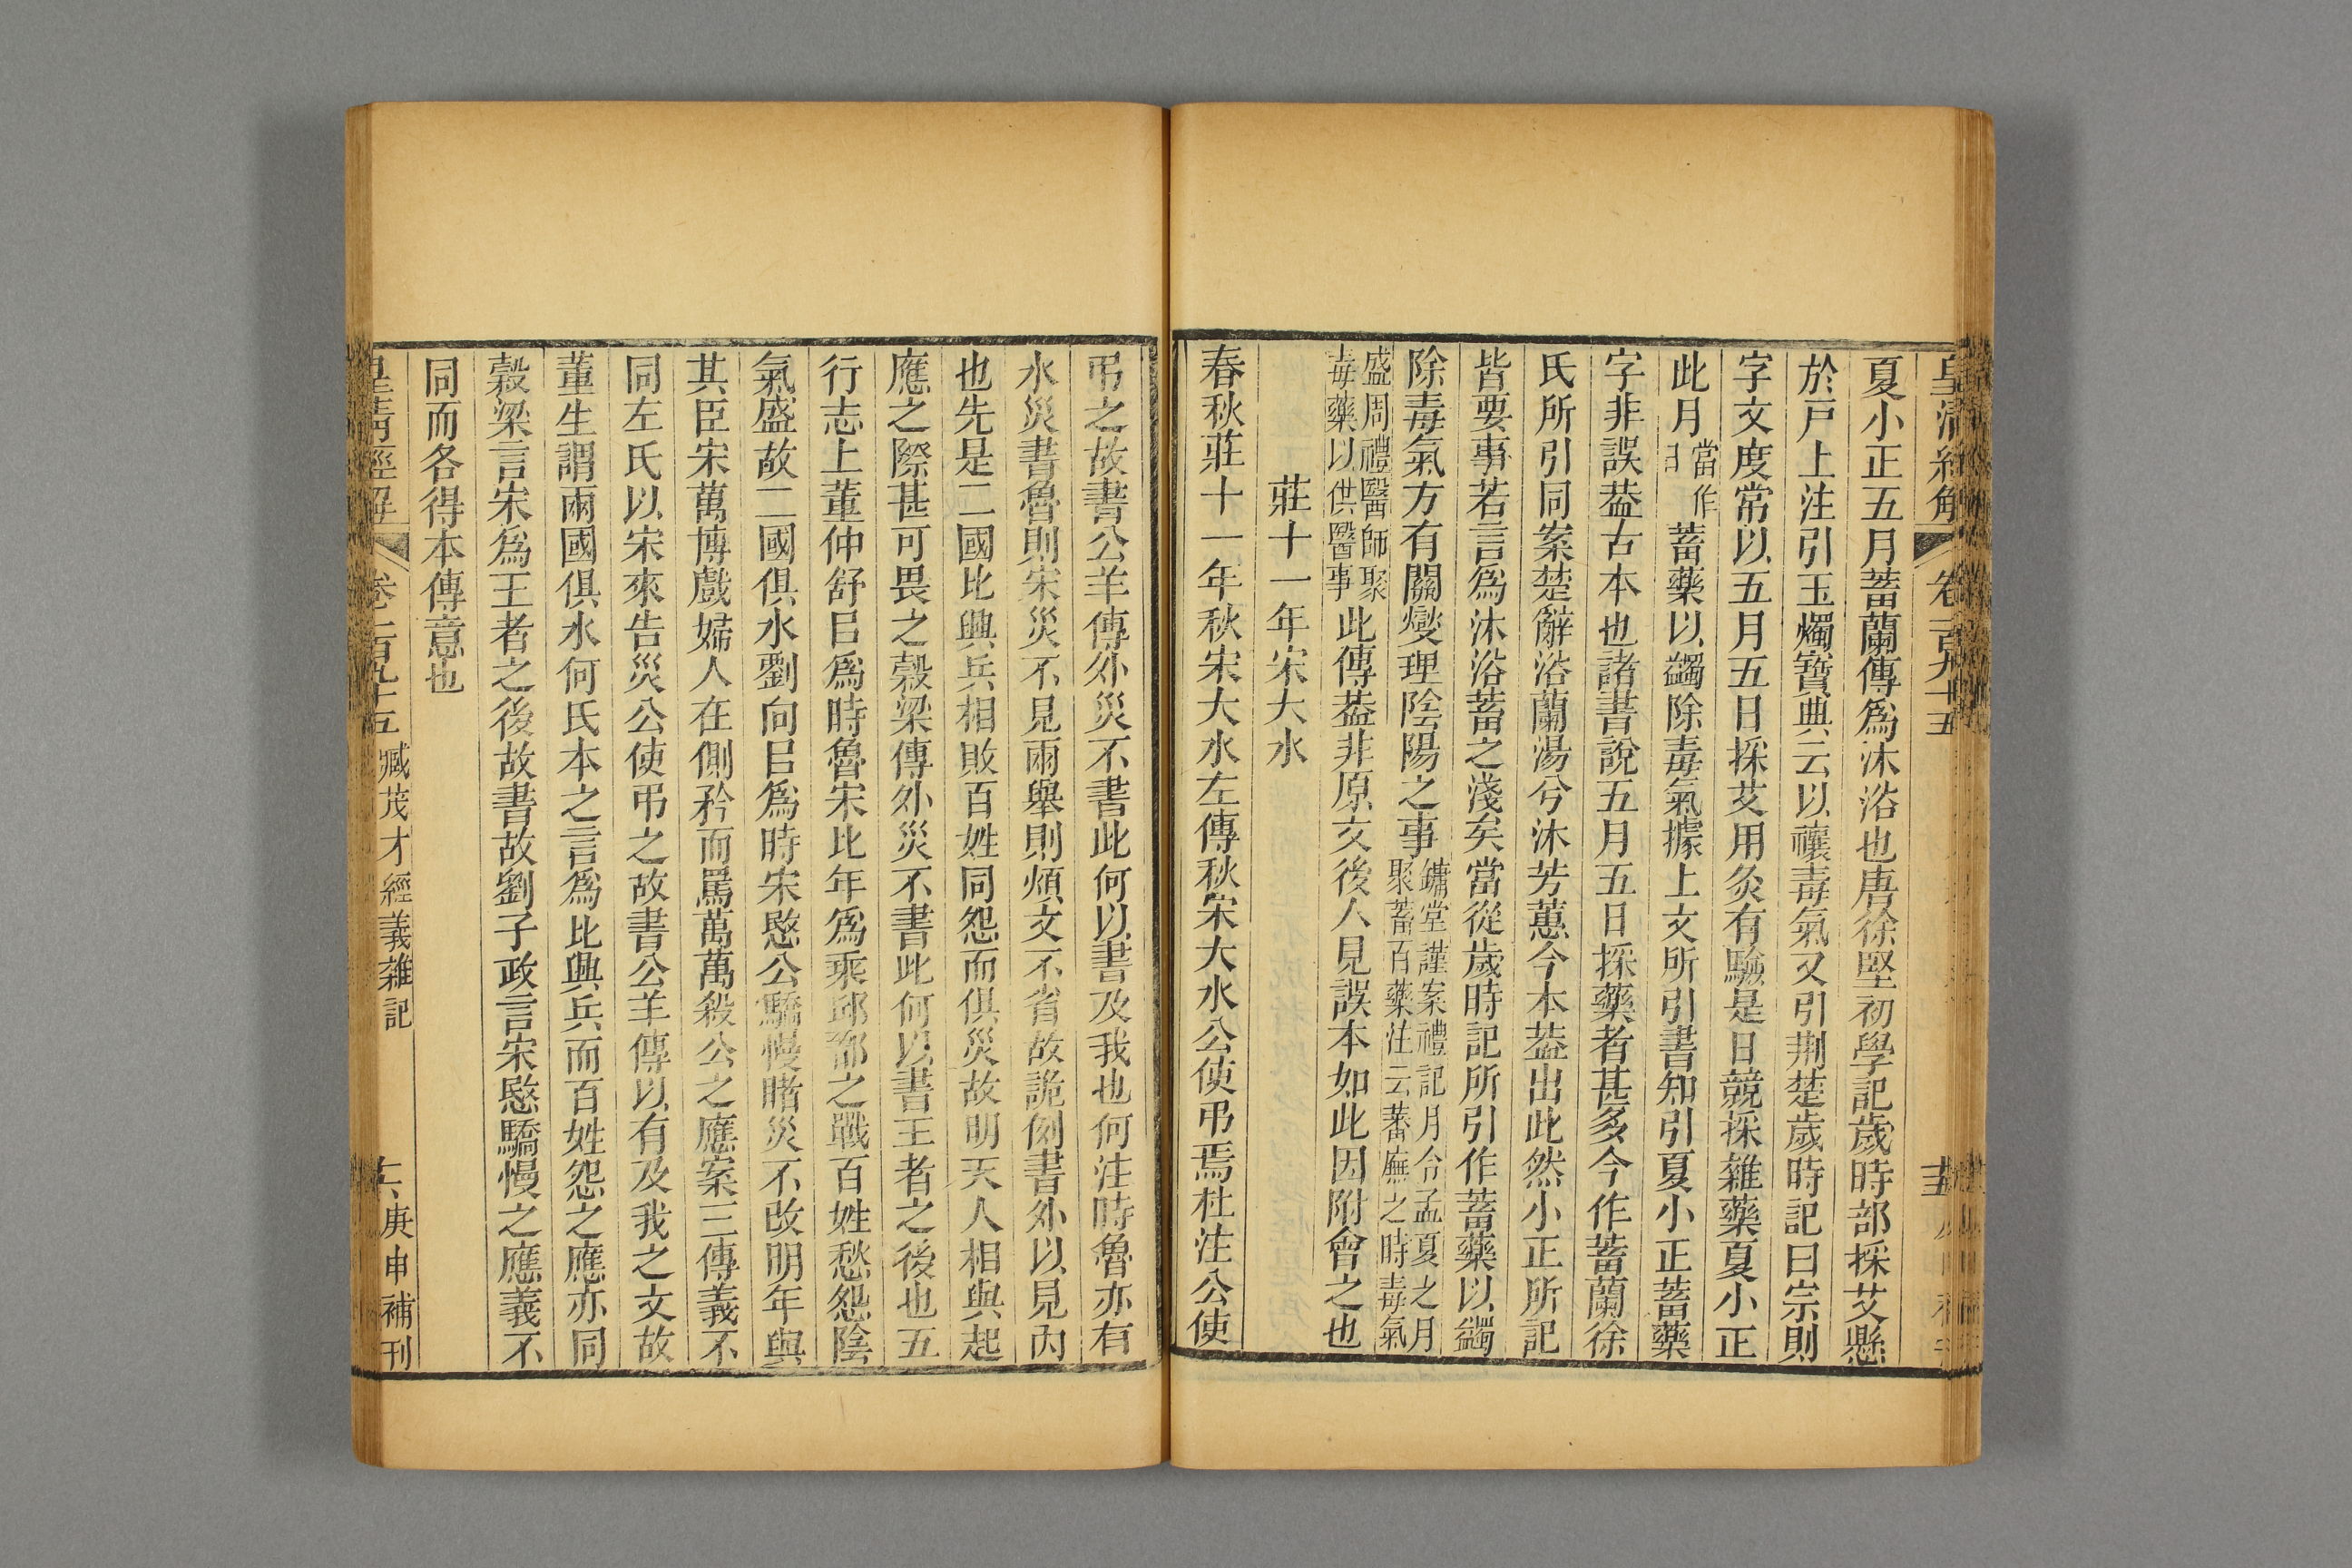 皇清經解 卷一百九十五
夏小正五月蓄蘭傳爲沐浴也唐徐堅初學記歲時部採艾懸
於戸上注引玉燭寶典云以禳毒氣又引荆楚歲時記曰宗則
字文度常以五月五日採艾用灸有驗是日競採雜藥夏小正
此月當作日蓄藥以蠲除毒氣據上文所引書知引夏小正蓄藥
字非誤葢古本也諸書說五月五日採藥者甚多今作蓄蘭徐
氏所引同案楚辭浴蘭湯兮沐芳蕙今本葢出此然小正所記
皆要事若言爲沐浴蓄之淺矣當從歲時記所引作蓄藥以蠲
除毒氣方有關燮理陰陽之事鏞堂謹案禮記月令孟夏之月聚蓄百藥注云蕃廡之時毒氣
盛周禮醫師聚毒藥以供醫事此傳葢非原文後人見誤本如此因附會之也
莊十一年宋大水
春秋莊十一年秋宋大水左傳秋宋大水公使弔焉杜注公使
弔之故書公羊傳外災不書此何以書及我也何注時魯亦有
水災書魯則宋災不見兩舉則煩文不省故詭例書外以見內
也先是二國比興兵相敗百姓同怨而俱災故明天人相與起
應之際甚可畏之穀梁傳外災不書此何以書王者之後也五
行志上董仲舒㠯爲時魯宋比年爲乘邱鄑之戰百姓愁怨陰
氣盛故二國俱水劉向㠯爲時宋愍公驕慢睹災不改明年與
其臣宋萬博戲婦人在側矜而罵萬萬殺公之應案三傳義不
同左氏以宋來告災公使弔之故書公羊傳以有及我之文故
董生謂兩國俱水何氏本之言爲比興兵而百姓怨之應亦同
穀梁言宋爲王者之後故書故劉子政言宋愍驕慢之應義不
同而各得本傳意也
皇清經解 卷一百九十五 臧茂才經義雜記 十六 庚申補刊